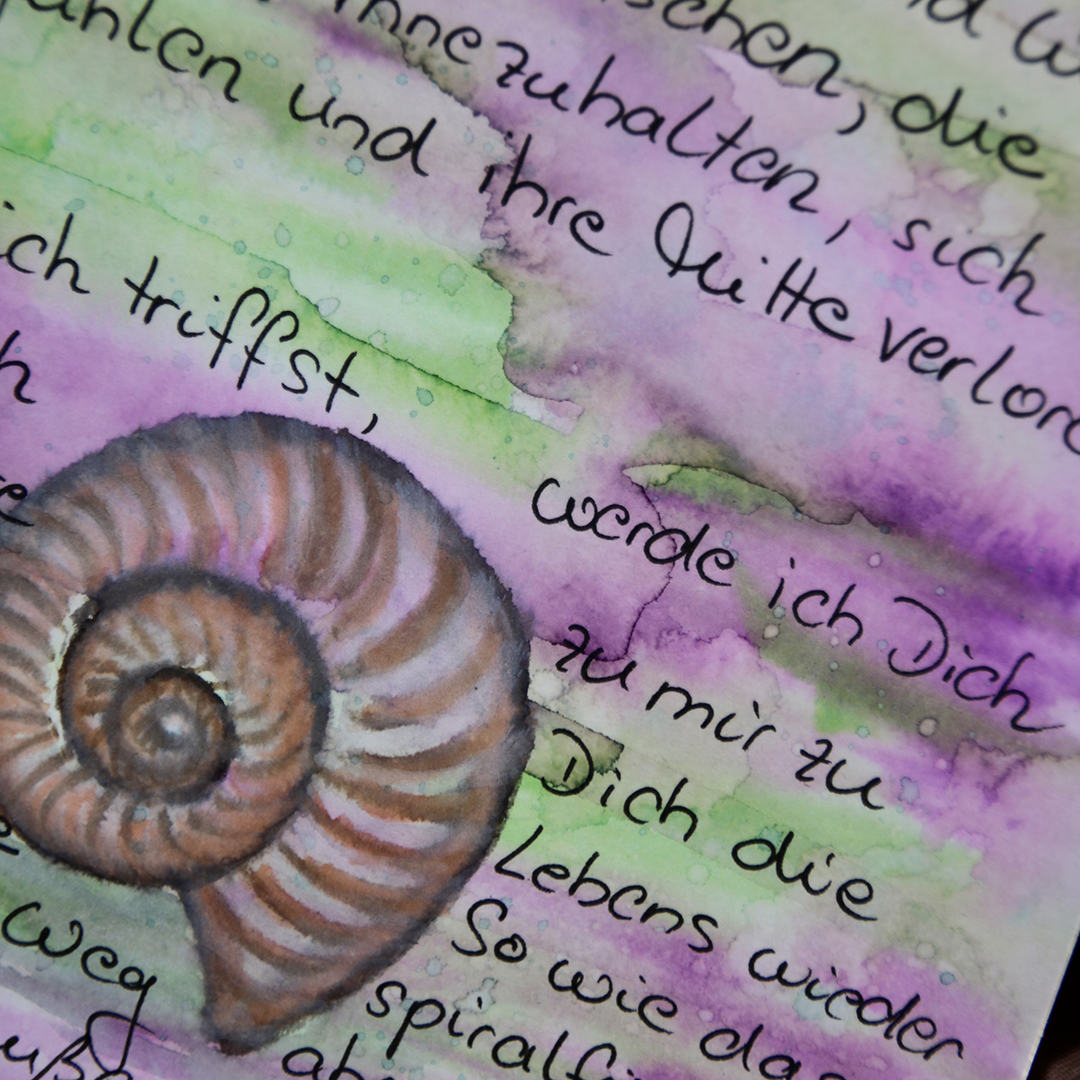 schen, die
innezuhalten, sich
ühlen und ihre Mitte verlore
ich triffst, werde ich Dich
zu mir zu
Dich die
Lebens wieder
So wie das
spiralf
Weg